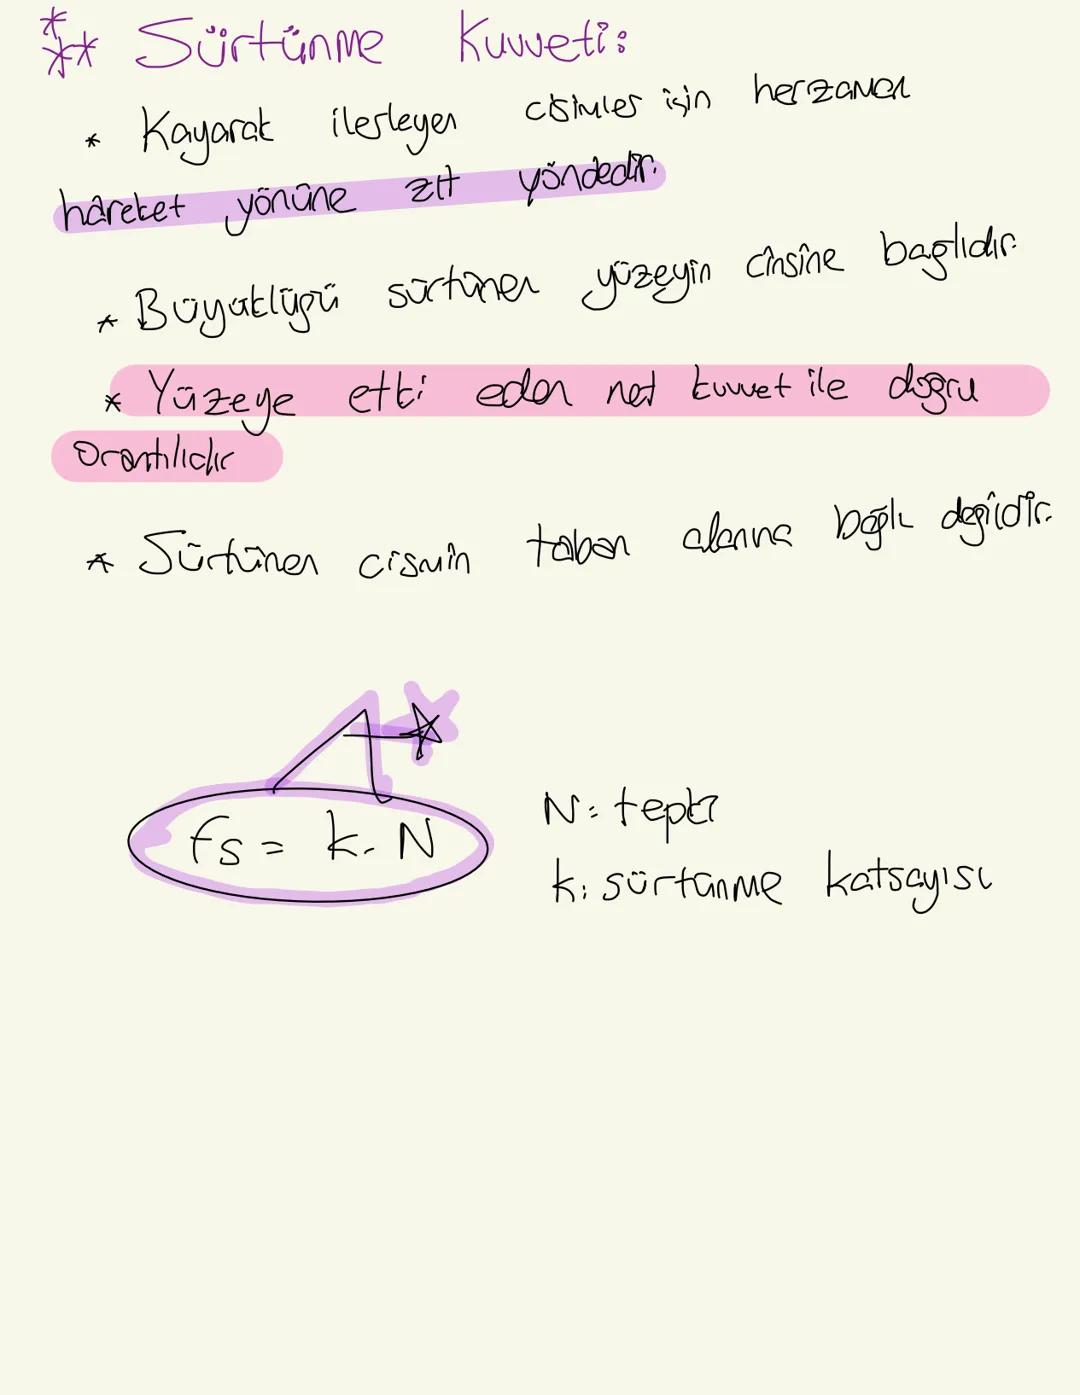 Sürtünme Kuvveti:
* Kayarak ilerleyen cisimler için herzaman
hareket yönüne zıt yöndedir.
* Büyüklüğü sürtünen yüzeyin cinsine bağlıdır.
* Yüzeye etki eden net kuvvet ile doğru
orantılıdır
* Sürtünen cismin taban alanına bağlı değildir.
fs = k. N
N: tepki
k: sürtünme katsayısı